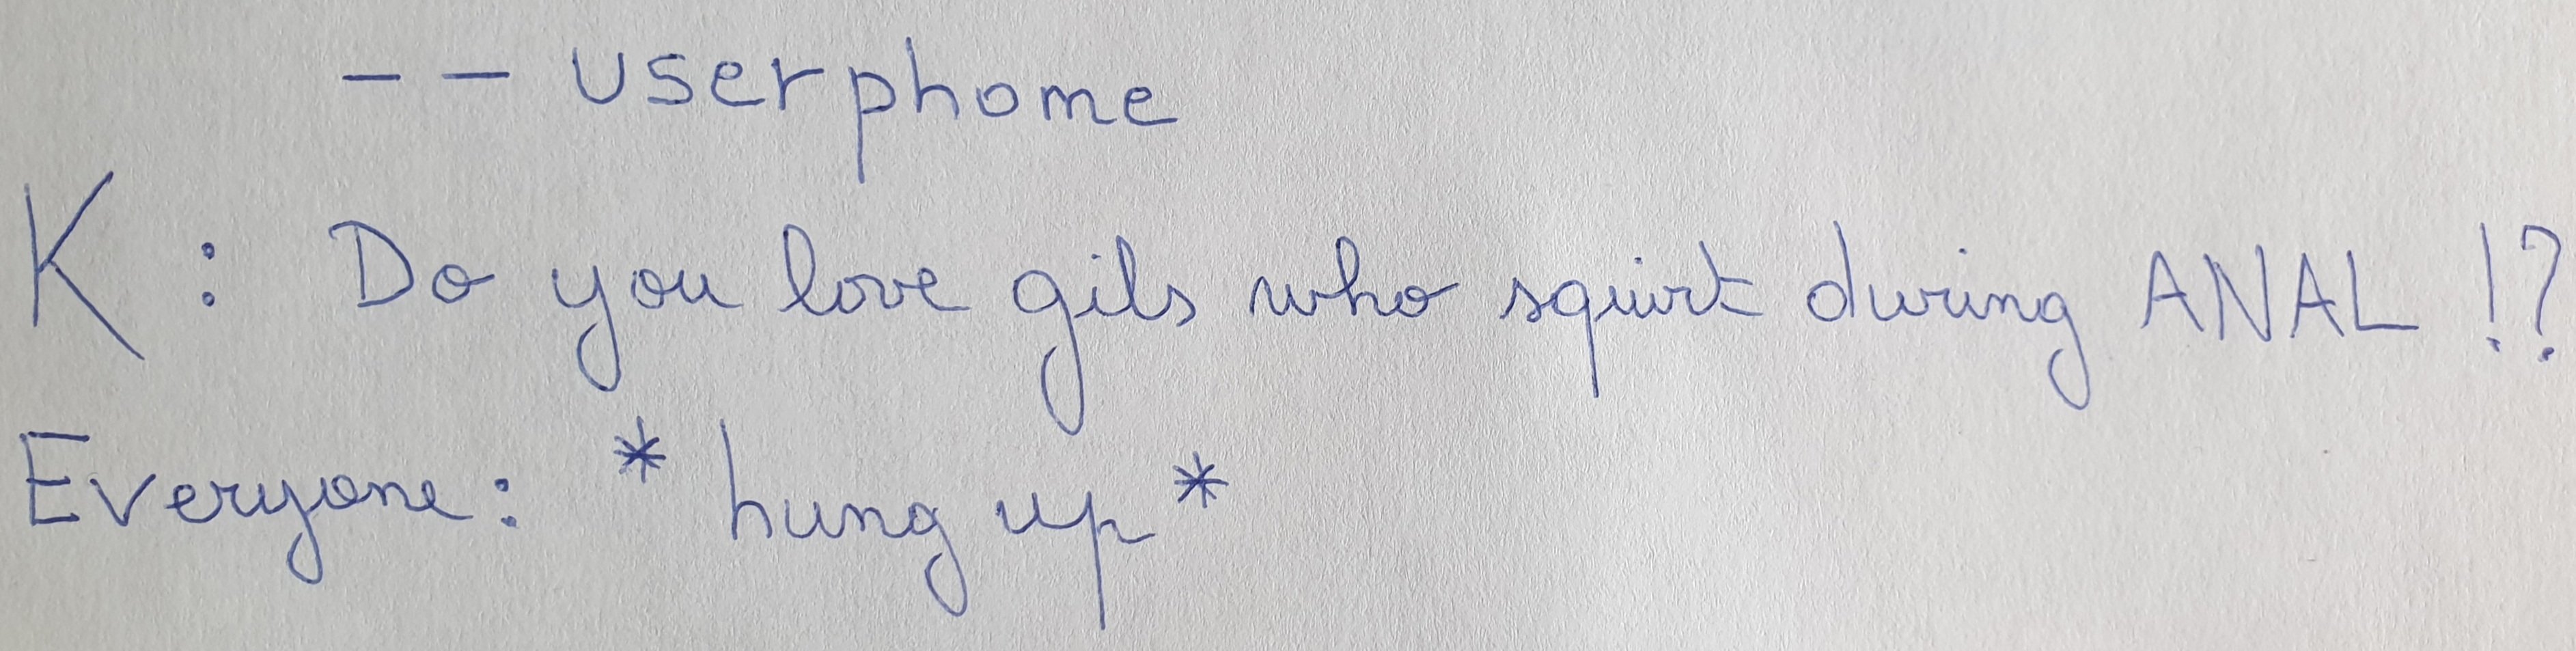 -- userphome
K : Do you love gils who squirt during ANAL !?
Everyone: *hung up*